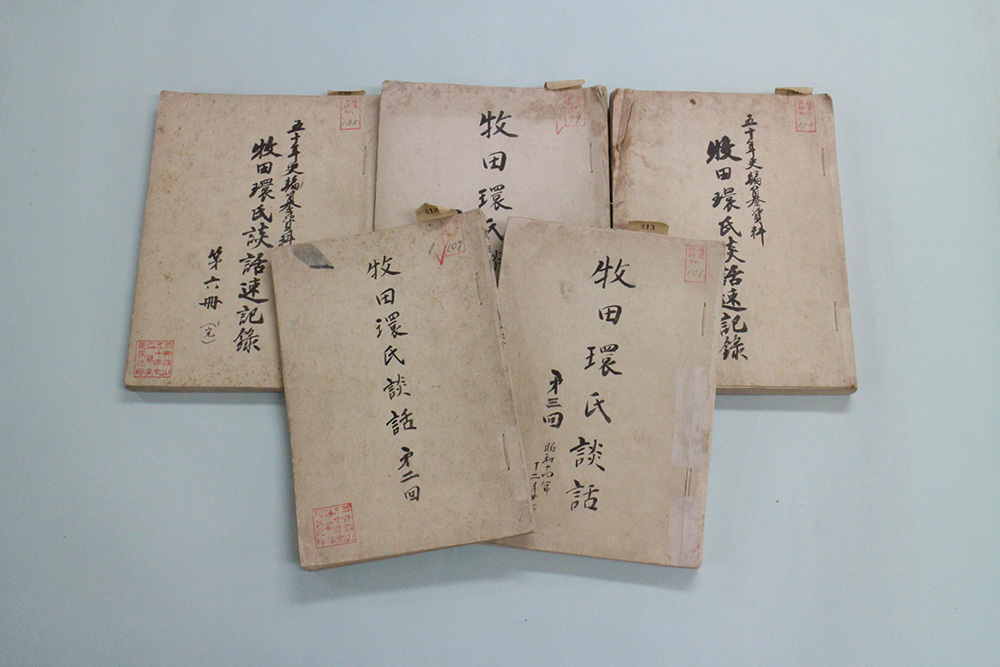 五十年史編纂資料
牧田環氏談話速記録
第六冊
(完)
牧田環氏談
五十年史編纂資料
牧田環氏談話速記録
牧田環氏談話
第二回
107
牧田環氏談話
第三回
昭和十四年
108
313